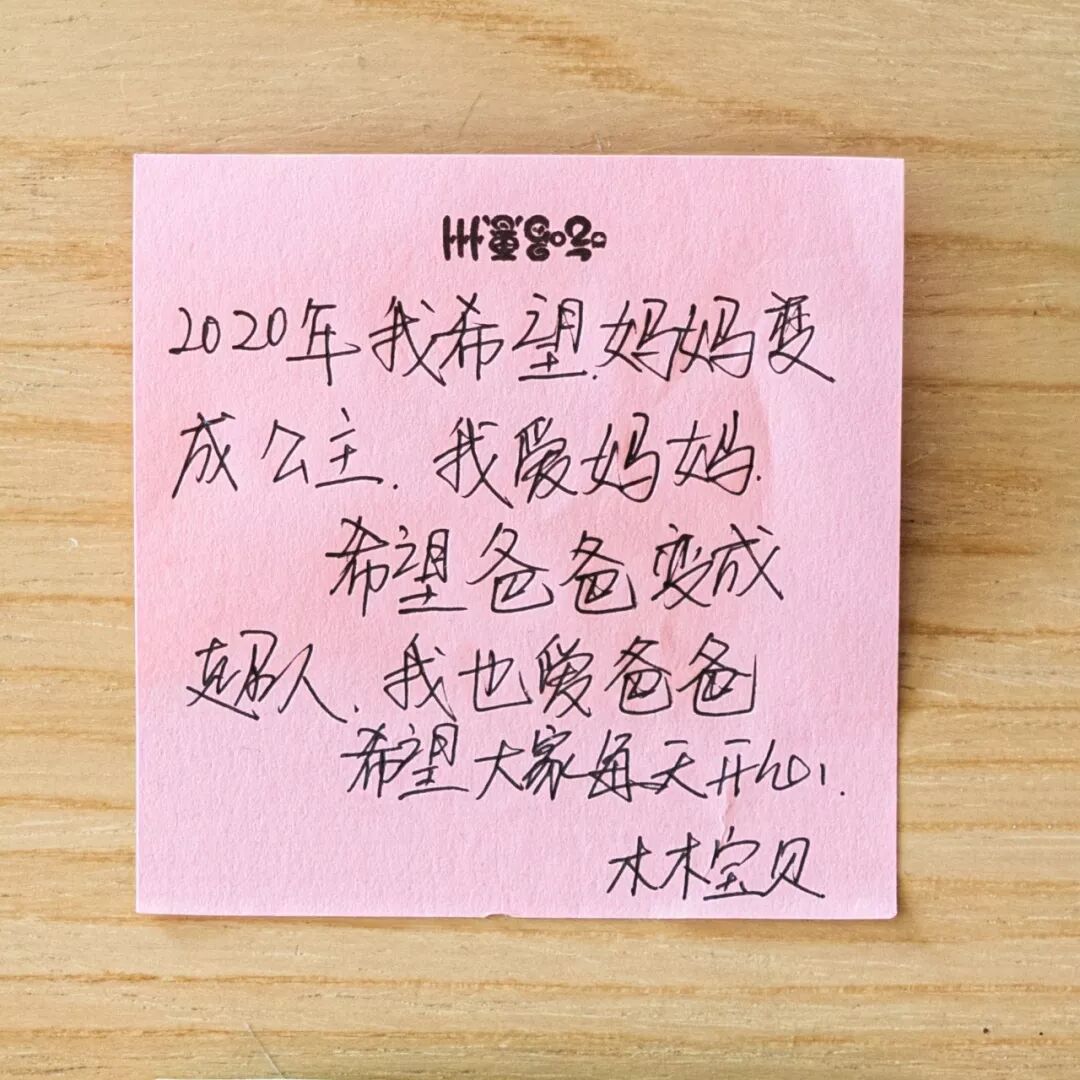 2020年我希望.妈妈变
成公主.我爱妈妈.
希望爸爸变成
超人.我也爱爸爸
希望大家每天开心.
木木宝贝